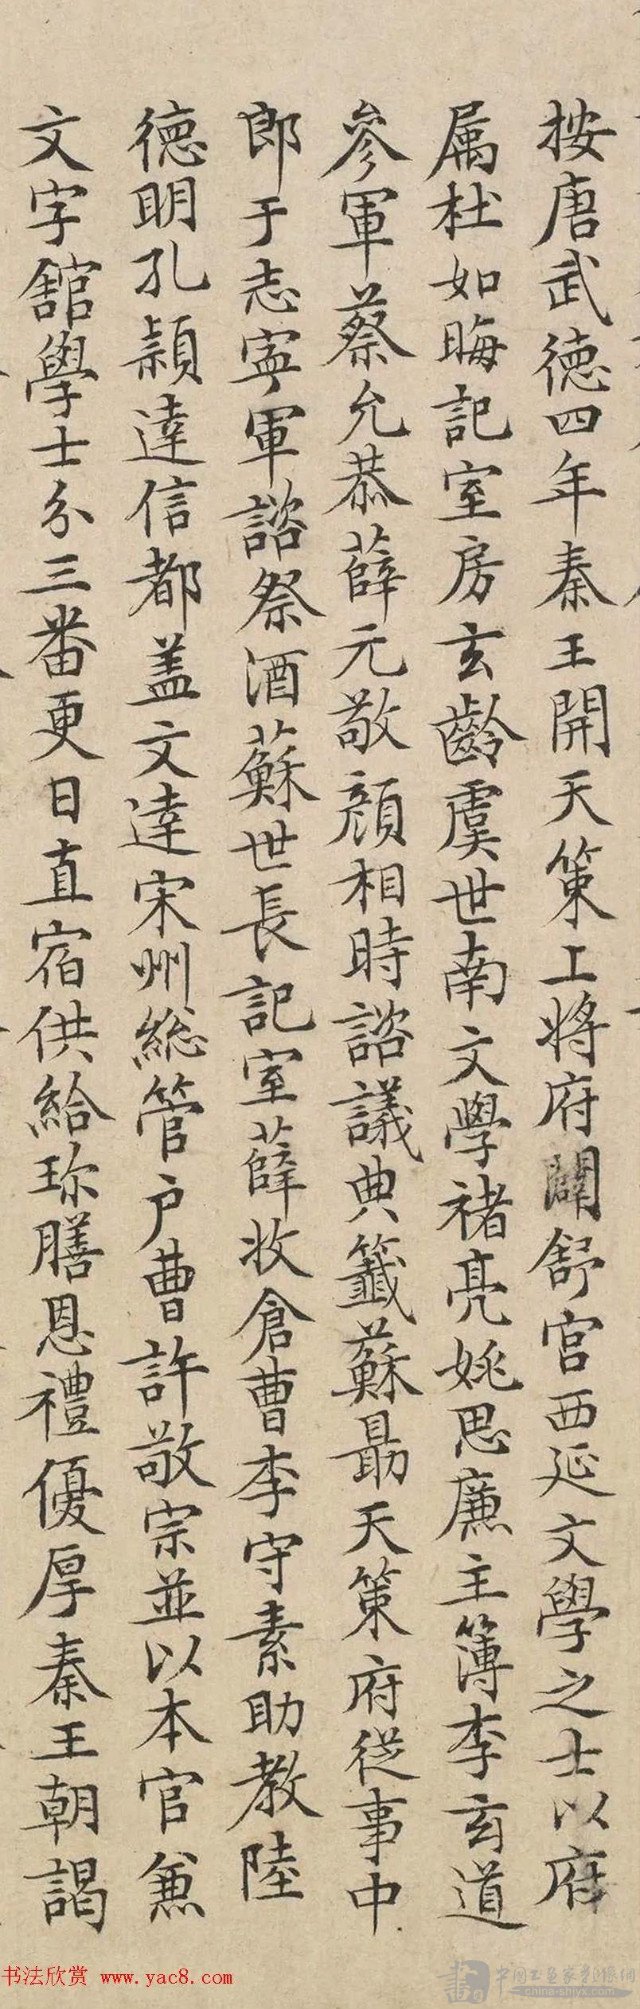 按唐武德四年秦王開天策上將府闢舒宮西延文學之士以府
属杜如晦記室房玄齡虞世南文學褚亮姚思廉主簿李玄道
參軍蔡允恭薛元敬顔相時諮議典籤蘇勗天策府從事中
郎于志寧軍諮祭酒蘇世長記室薛收倉曹李守素助教陸
德明孔穎達信都盖文達宋州総管户曹許敬宗並以本官兼
文字舘學士分三番更日直宿供給珎膳恩禮優厚秦王朝謁
书法欣赏 www.yac8.com
china-shiyx.com